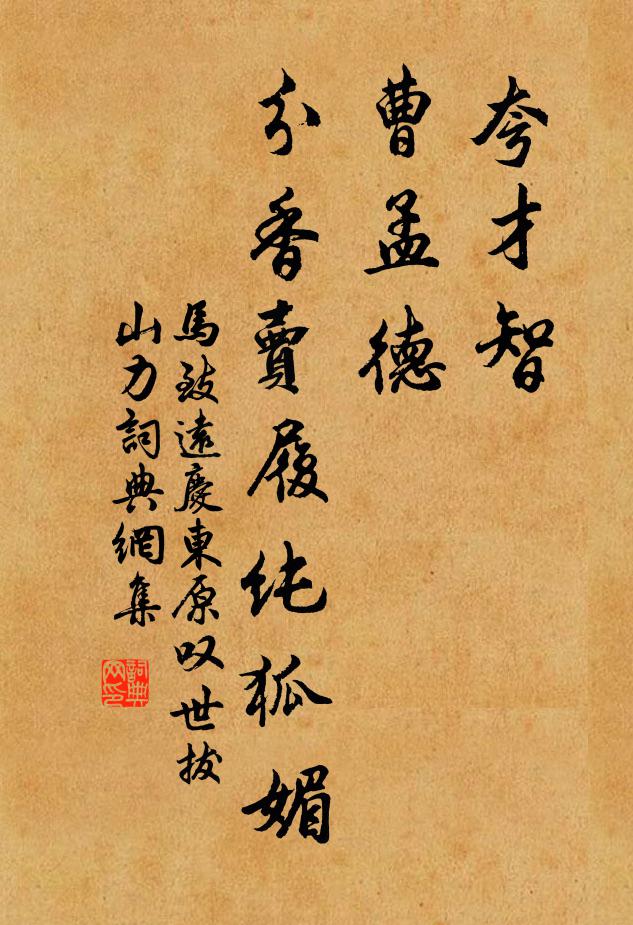 夸才智
曹孟德
分香賣履純狐媚
馬致遠慶東原叹世拔
山力詞典網集
詞典
网印